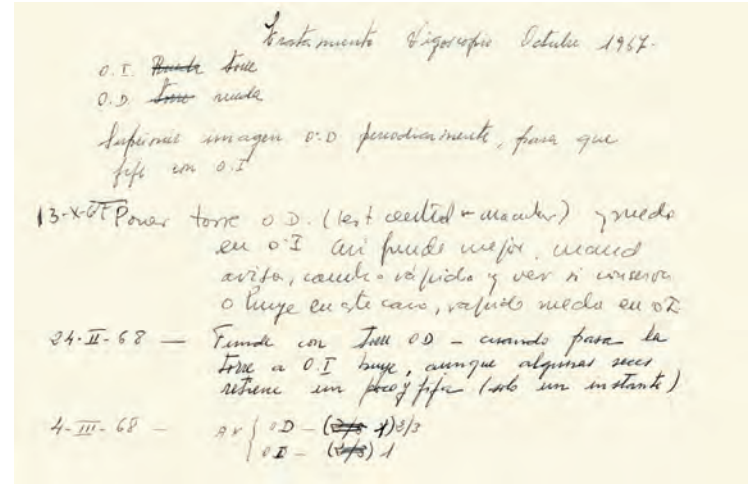 Tratamiento Vigoscopio Octubre 1967.
O.I. Rueda torre
O.D. torre rueda
Suprimir imagen O.D periodicamente, para que
fije con O.I
13-X-67 Poner torre O.D. (test central - macular) y rueda
en O.I así funde mejor, cuand
avisa, cambio rápido y ver si conserva
o huye en este caso, rapido rueda en OI
24-II-68 — Funde con torre OD - cuando pasa la
torre a O.I huye, aunque algunas veces
retiene un poco y fija (solo un instante)
4-III-68 - AV { OD - (2/3 1) 2/3
OI - (2/3) 1